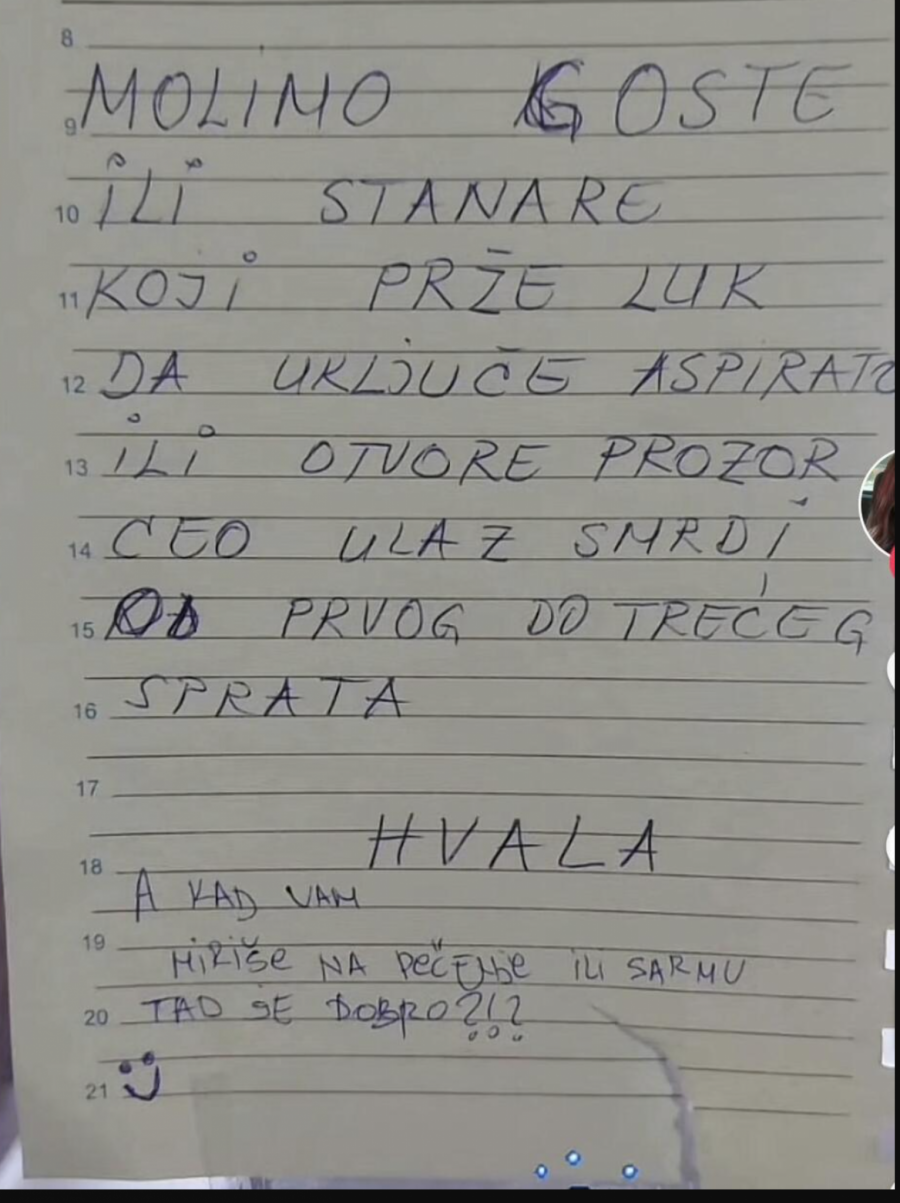 8
MOLIMO GOSTE
9
10 ILI STANARE
11 KOJI PRŽE LUK
12 DA UKLJUČE ASPIRATO
13 ILI OTVORE PROZOR
14 CEO ULAZ SMRDI
15 OD PRVOG DO TREĆEG
16 SPRATA
17
18 HVALA
A KAD VAM
19 MiRišE NA PEČENjE ili SARMU
20 TAD JE DOBRO?!?
21